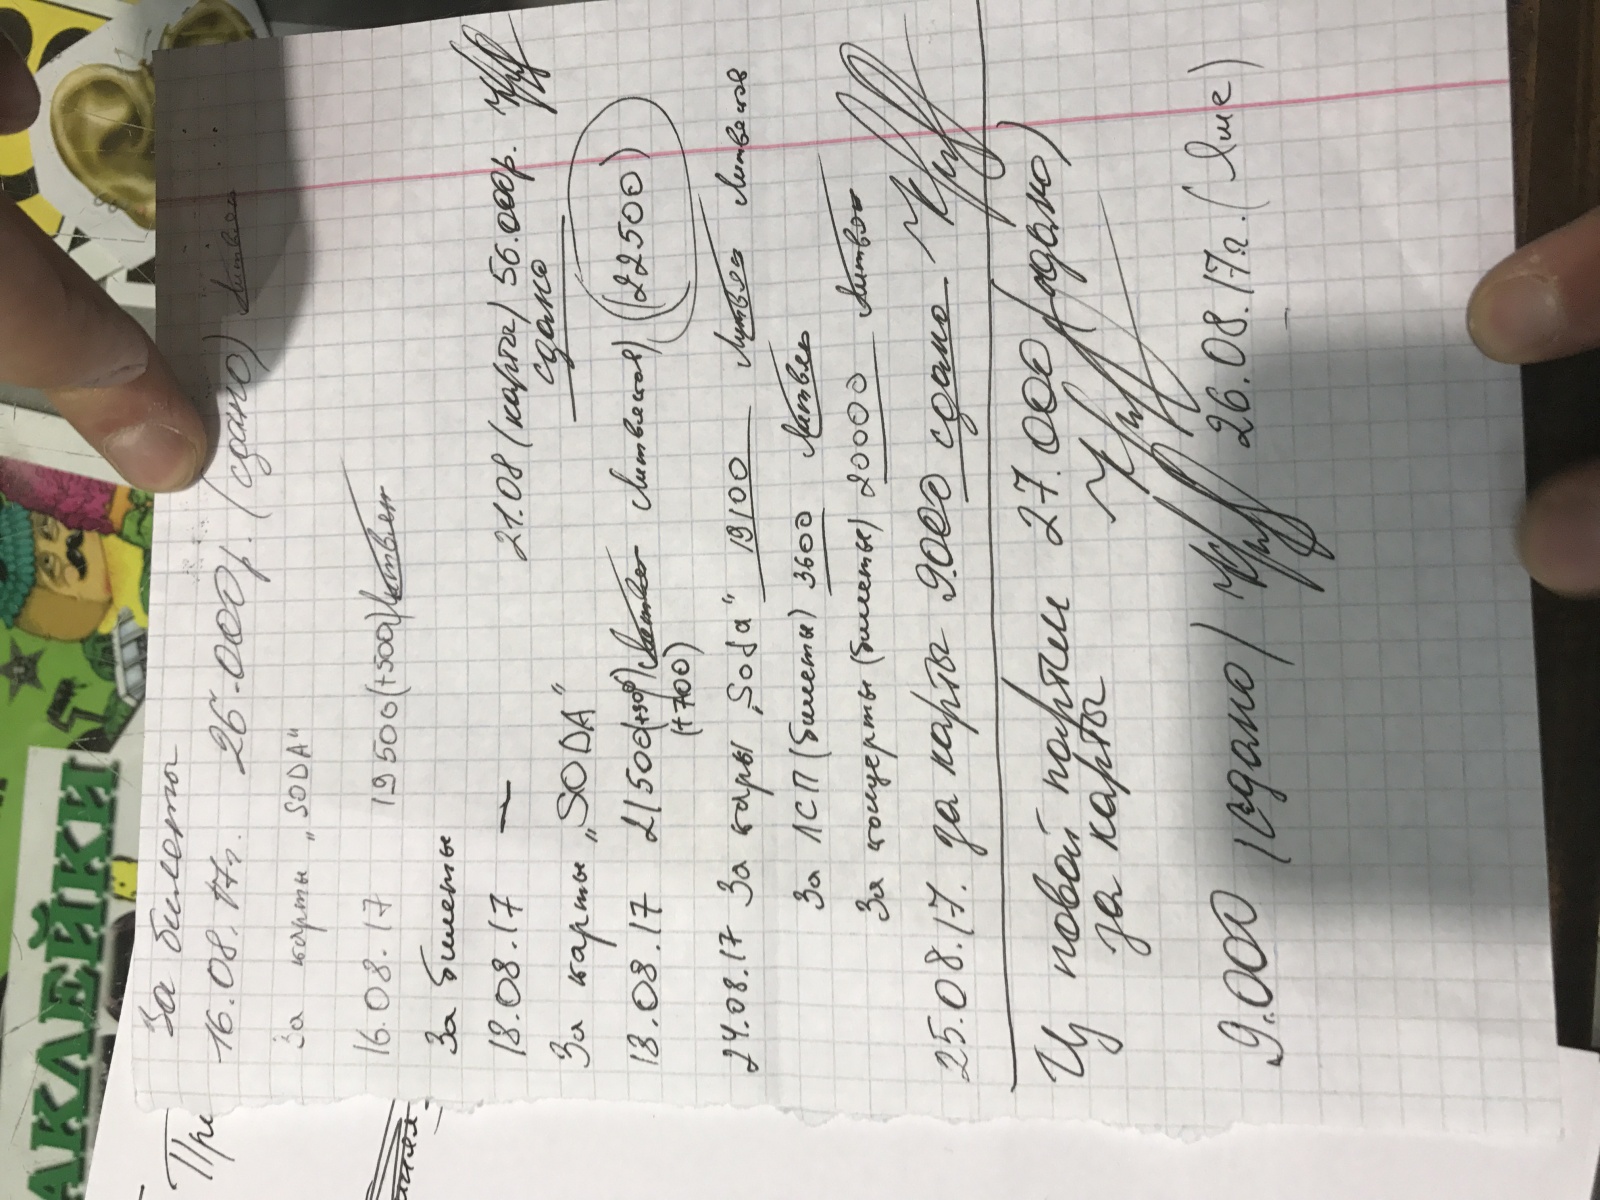 За билеты
16.08.17г. 26.000р. (сдано)
За карты „SODA"
16.08.17 19500(+500)
За билеты
18.08.17 —
21.08 (карты) 56.000р.
сдано
За карты „SODA"
18.08.17 21500(+500) (22500)
(+700)
24.08.17 За карты „Soda" 19100
За ЛСП (билеты) 3600
За концерты (билеты) 20000
25.08.17. за карты 9.000 сдано
Из новой партии 27.000 (сдано)
за карты
9.000 (сдано) 26.08.17г. (Мне)
АКЛЕЙКИ
При